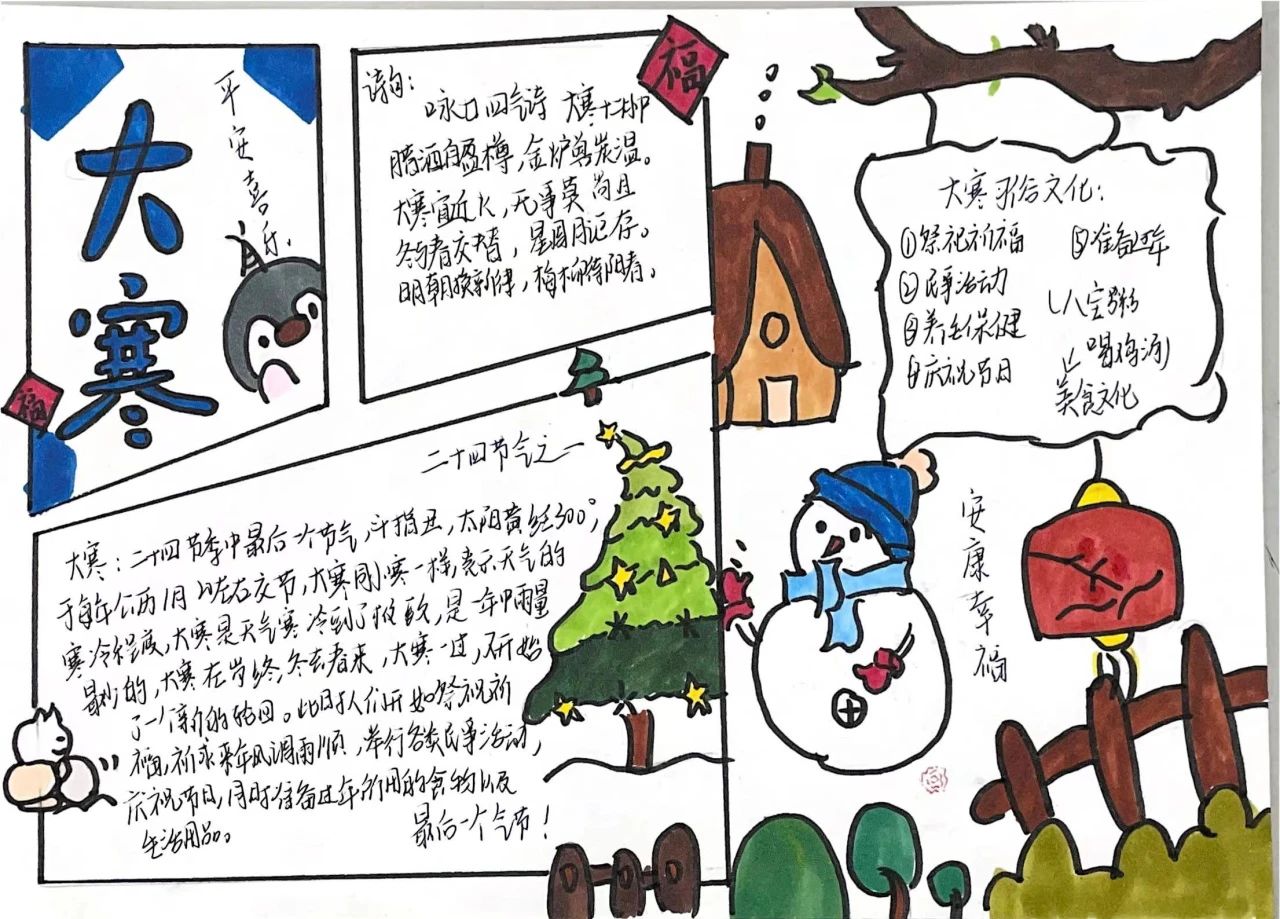 大寒
平安喜乐.
福
福
诗句：
咏廿四气诗 大寒十二月中
腊酒自盈樽，金炉兽炭温。
大寒宜近火，无事莫苟且
冬与春交替，星周月已存。
明朝换新律，梅柳待阳春。
大寒习俗文化：
①祭祀祈福
②民事活动
③养生保健
④庆祝节日
⑤准备过年
八宝粥
喝鸡汤
美食文化
安康幸福
二十四节气之一
大寒：二十四节季中最后一个节气，斗指丑，太阳黄经300°，
于每年公历1月 左右交节，大寒同小寒一样，表示天气的
寒冷程度，大寒是天气寒冷到了极致，是一年中雨量
最少的，大寒在岁终，冬去春来，大寒一过，又开始
了一个新的轮回。此时人们开始祭祝祈
福，祈求来年风调雨顺，举行各类民事活动，
庆祝节日，同时准备过年所用的食物以及
生活用品。
最后一个气节！